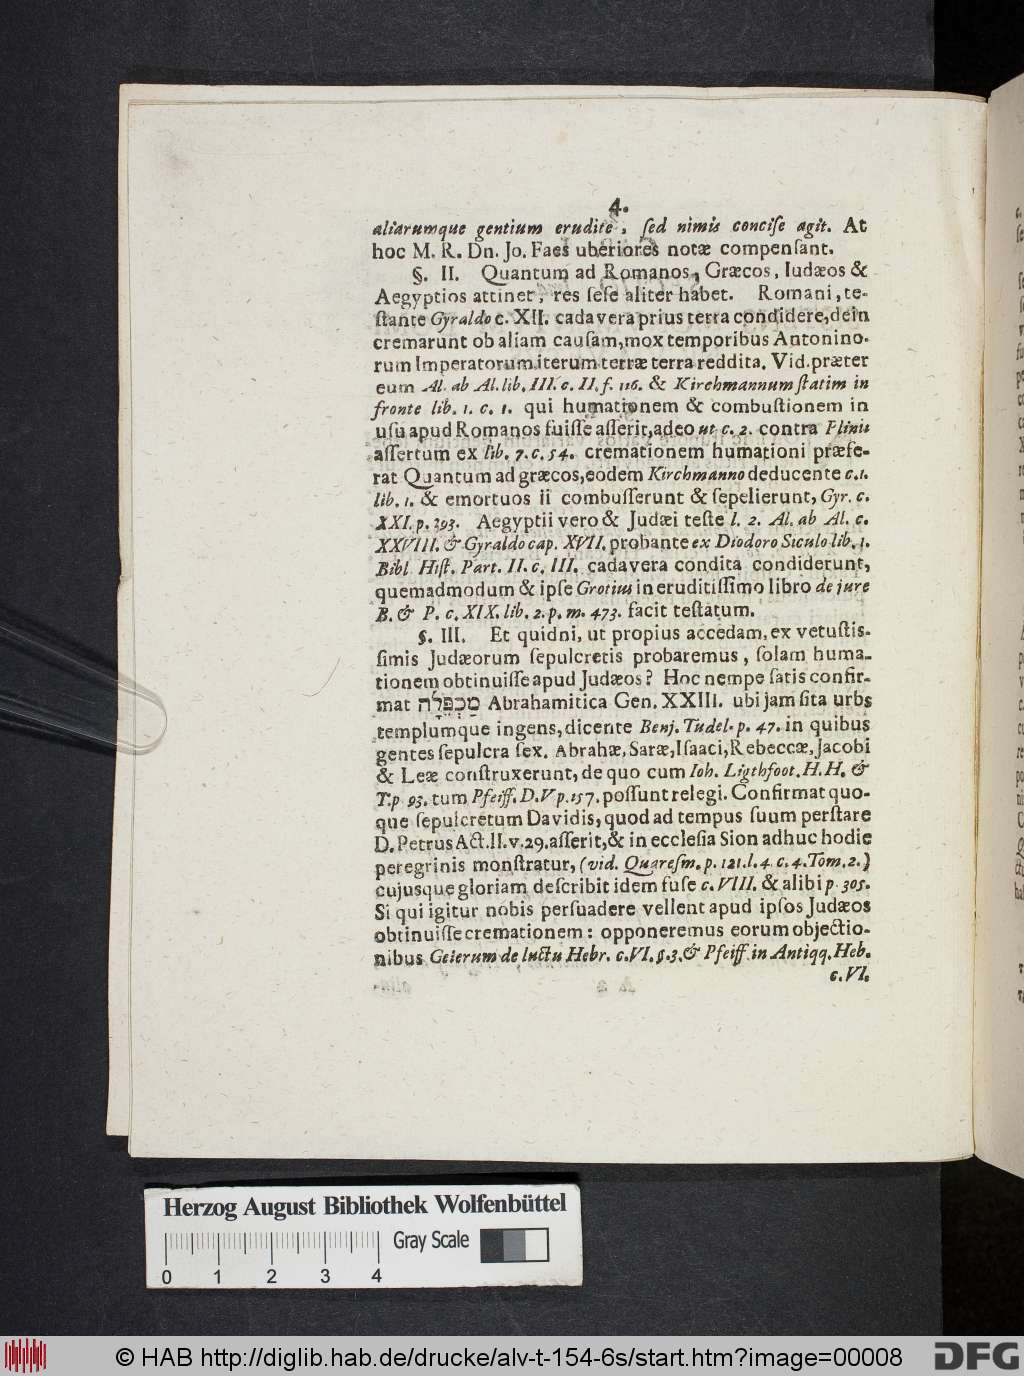 4.
aliarumque gentium erudite, ſed nimis conciſe agit. At
hoc M. R. Dn. Jo. Faes uberiores notæ compenſant.
§. II. Quantum ad Romanos, Græcos, Iudæos &
Aegyptios attinet, res ſeſe aliter habet. Romani, te-
ſtante Gyraldo c. XII. cadavera prius terra condidere, dein
cremarunt ob aliam cauſam, mox temporibus Antonino-
rum Imperatorum iterum terræ terra reddita. Vid. præter
eum Al. ab Al. lib. III. c. II. f. 116. & Kirchmannum ſtatim in
fronte lib. 1. c. 1. qui humationem & combuſtionem in
uſu apud Romanos fuiſſe aſſerit, adeo ut c. 2. contra Plinii
aſſertum ex lib. 7. c. 54. cremationem humationi præfe-
rat Quantum ad græcos, eodem Kirchmanno deducente c. 1.
lib. 1. & emortuos ii combuſſerunt & ſepelierunt, Gyr. c.
XXI. p. 393. Aegyptii vero & Judæi teſte l. 2. Al. ab Al. c.
XXVIII. & Gyraldo cap. XVII. probante ex Diodoro Siculo lib. 1.
Bibl Hiſt. Part. II. c. III. cadavera condita condiderunt,
quemadmodum & ipſe Grotius in eruditiſſimo libro de jure
B. & P. c. XIX. lib. 2. p. m. 473. facit teſtatum.
§. III. Et quidni, ut propius accedam, ex vetuſtis-
ſimis Judæorum ſepulcretis probaremus, ſolam huma-
tionem obtinuiſſe apud Judæos? Hoc nempe ſatis confir-
mat מַכְפֵּלָה Abrahamitica Gen. XXIII. ubi jam ſita urbs
templumque ingens, dicente Benj. Tudel. p. 47. in quibus
gentes ſepulcra ſex. Abrahæ, Saræ, Iſaaci, Rebeccæ, Jacobi
& Leæ conſtruxerunt, de quo cum Ioh. Ligthfoot. H. H. &
T. p 93. tum Pfeiff. D. V p. 157. poſſunt relegi. Confirmat quo-
que ſepulcretum Davidis, quod ad tempus ſuum perſtare
D. Petrus Act. II. v. 29. aſſerit, & in eccleſia Sion adhuc hodie
peregrinis monſtratur, (vid. Quareſm. p. 121. l. 4. c. 4. Tom. 2.)
cujusque gloriam deſcribit idem fuſe c. VIII. & alibi p. 305.
Si qui igitur nobis perſuadere vellent apud ipſos Judæos
obtinuiſſe cremationem: opponeremus eorum objectio-
nibus Geierum de luctu Hebr. c. VI. §. 3. & Pfeiff. in Antiqq. Heb.
c. VI.
Herzog August Bibliothek Wolfenbüttel
Gray Scale
0 1 2 3 4
© HAB http://diglib.hab.de/drucke/alv-t-154-6s/start.htm?image=00008
DFG